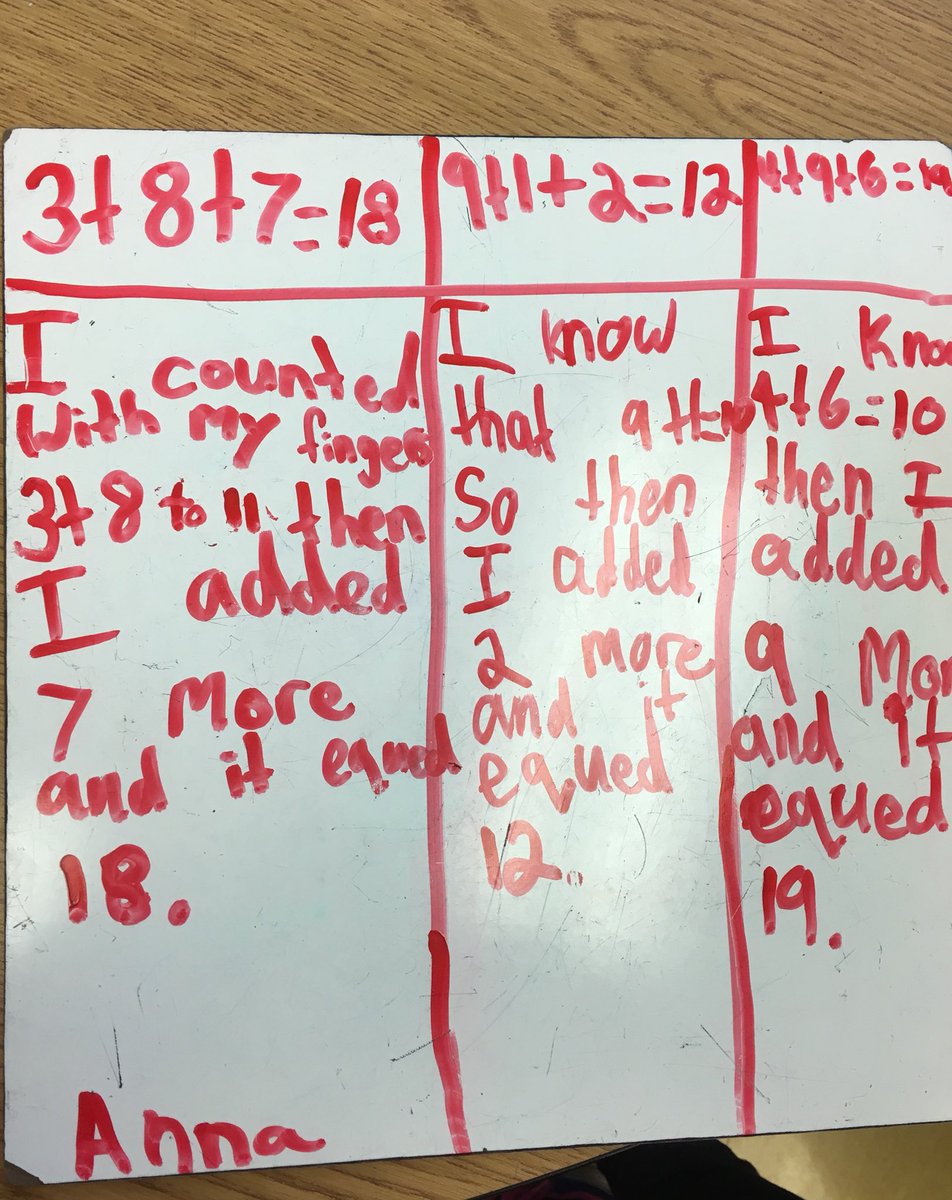 3+8+7=18
I counted
With my fingers
3+8 to 11 then
I added
7 More
and it equed
18.
Anna
9+1+2=12
I know
that 9+1=10
So then
I added
2 more
and it
equed
12.
4+9+6=19
I Know
4+6=10
then I
added
9 Mor
and it
equed
19.